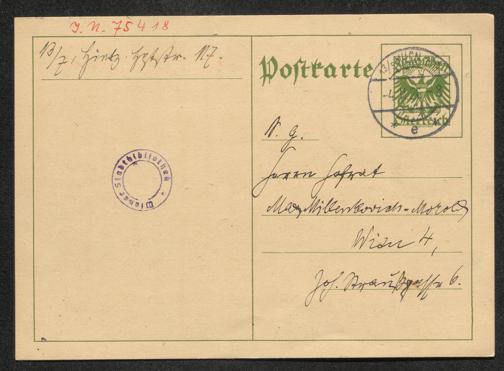 I. N. 75418
13/7, Hietz. Hptstr. N7.
Postkarte
WIEN
e
Österreich
Wiener Stadtbibliothek
S. g.
Herrn Hofrat
Max Millenkovich-Morold
Wien 4,
Joh. Straußgasse 6.